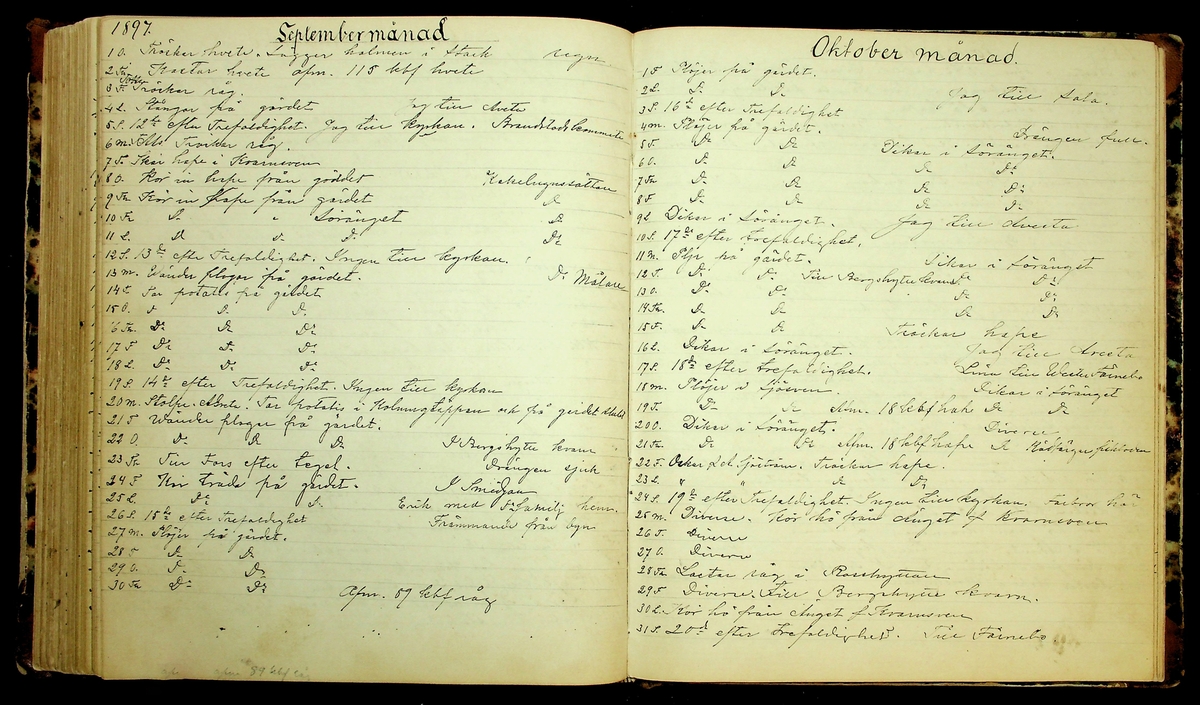 1897. September månad
1 O. Tröskar hvete. Lägger halmen i stack regn
2 Th. Kastar hvete afm. 115 kbf hvete
3 F. Tröskar råg.
4 L. Stångar på gärdet Jag till Avesta
5 S. 12te efter Trefaldighet. Jag till kyrkan.
6 m. råg.
7 T. Skär hafre i Kvarneven
8 O. Kör in hafre från gärdet Kakelugnssättare
9 Th. Kör in Hafre från gärdet D:o
10 Fr. D:o " Söränget D:o
11 L. D:o D:o D:o D:o
12 S. 13de efter Trefaldighet. Ingen till kyrkan.
13 m. Wänder plogar på gärdet. D:o Målare
14 T. Tar potatis på gärdet
15 O. D:o D:o D:o
16 Th. D:o D:o D:o
17 F. D:o D:o D:o
18 L. D:o D:o D:o
19 S. 14de efter Trefaldighet. Ingen till kyrkan
20 m. Tar potatis i och på gärdet
21 T. Wänder plogar på gärdet.
22 O. D:o D:o D:o I Bergshytte kvarn
23 Th. Till Fors efter tegel. Drängen sjuk
24 F. Kör träda på gärdet. I Smedjan
25 L. D:o D:o Erik med Familj hem.
26 S. 15de efter Trefaldighet Främmande från byn
27 m. Plöjer på gärdet.
28 T. D:o D:o
29 O. D:o D:o
30 Th. D:o D:o Afm. 89 kbf råg
89 kbf råg
Oktober månad.
1 F. Plöjer på gärdet.
2 L. D:o D:o Jag till Sala.
3 S. 16de efter Trefaldighet
4 m. Plöjer på gärdet. Drängen full.
5 T. D:o D:o Dikar i Söränget.
6 O. D:o D:o D:o D:o
7 Th. D:o D:o D:o D:o
8 F. D:o D:o D:o D:o
9 L. Dikar i Söränget. Jag till Avesta
10 S. 17de efter trefaldighet.
11 m. Plöjer på gärdet. Dikar i Söränget
12 T. D:o D:o Till Bergshytte kvarn D:o D:o
13 O. D:o D:o D:o D:o
14 Th. D:o D:o D:o D:o
15 F. D:o D:o Tröskar hafre
16 L. Dikar i Söränget. Jag till Avesta
17 S. 18de efter trefaldighet. till Wester Färnebo
18 m. Plöjer i Dikar i Söränget
19 T. D:o D:o Afm. 18 kbf D:o D:o
20 O. Dikar i Söränget. Diverse
21 Th. D:o D:o Afm. 18 kbf hafre
22 F. Tröskar hafre
23 L. " " D:o D:o
24 S. 19de efter Trefaldighet. Ingen till kyrkan. Farbror här
25 m. Diverse. Kör hö från Änget f Kvarneven
26 T. Diverse
27 O. Diverse
28 Th. Lastar råg i Rosshyttan
29 F. Diverse. Till Bergshytte kvarn.
30 L. Kör hö från Änget f Kvarneven
31 S. 20de efter trefaldighet. Till Färnebo